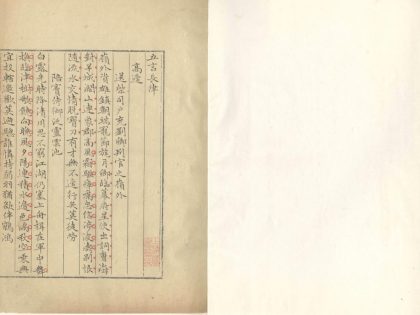 五言長律
高適
送柴司戶充劉卿判官之嶺外
嶺外資雄鎮朝端寵節旄月卿臨幕府星使出詞曹海
對羊城闊山連象郡高風霜驅瘴癘忠信涉波濤別恨
隨流水交情脫寶刀有才無不適行矣莫徒勞
陪竇侍御泛靈雲池
白露先時降清川思不窮江湖仍塞上舟楫在軍中舞
換臨津樹歌饒向晚風夕陽連積水邊色滿秋空乘興
宜投轄邀歡莫避驄誰憐持弱羽猶欲伴鵷鴻